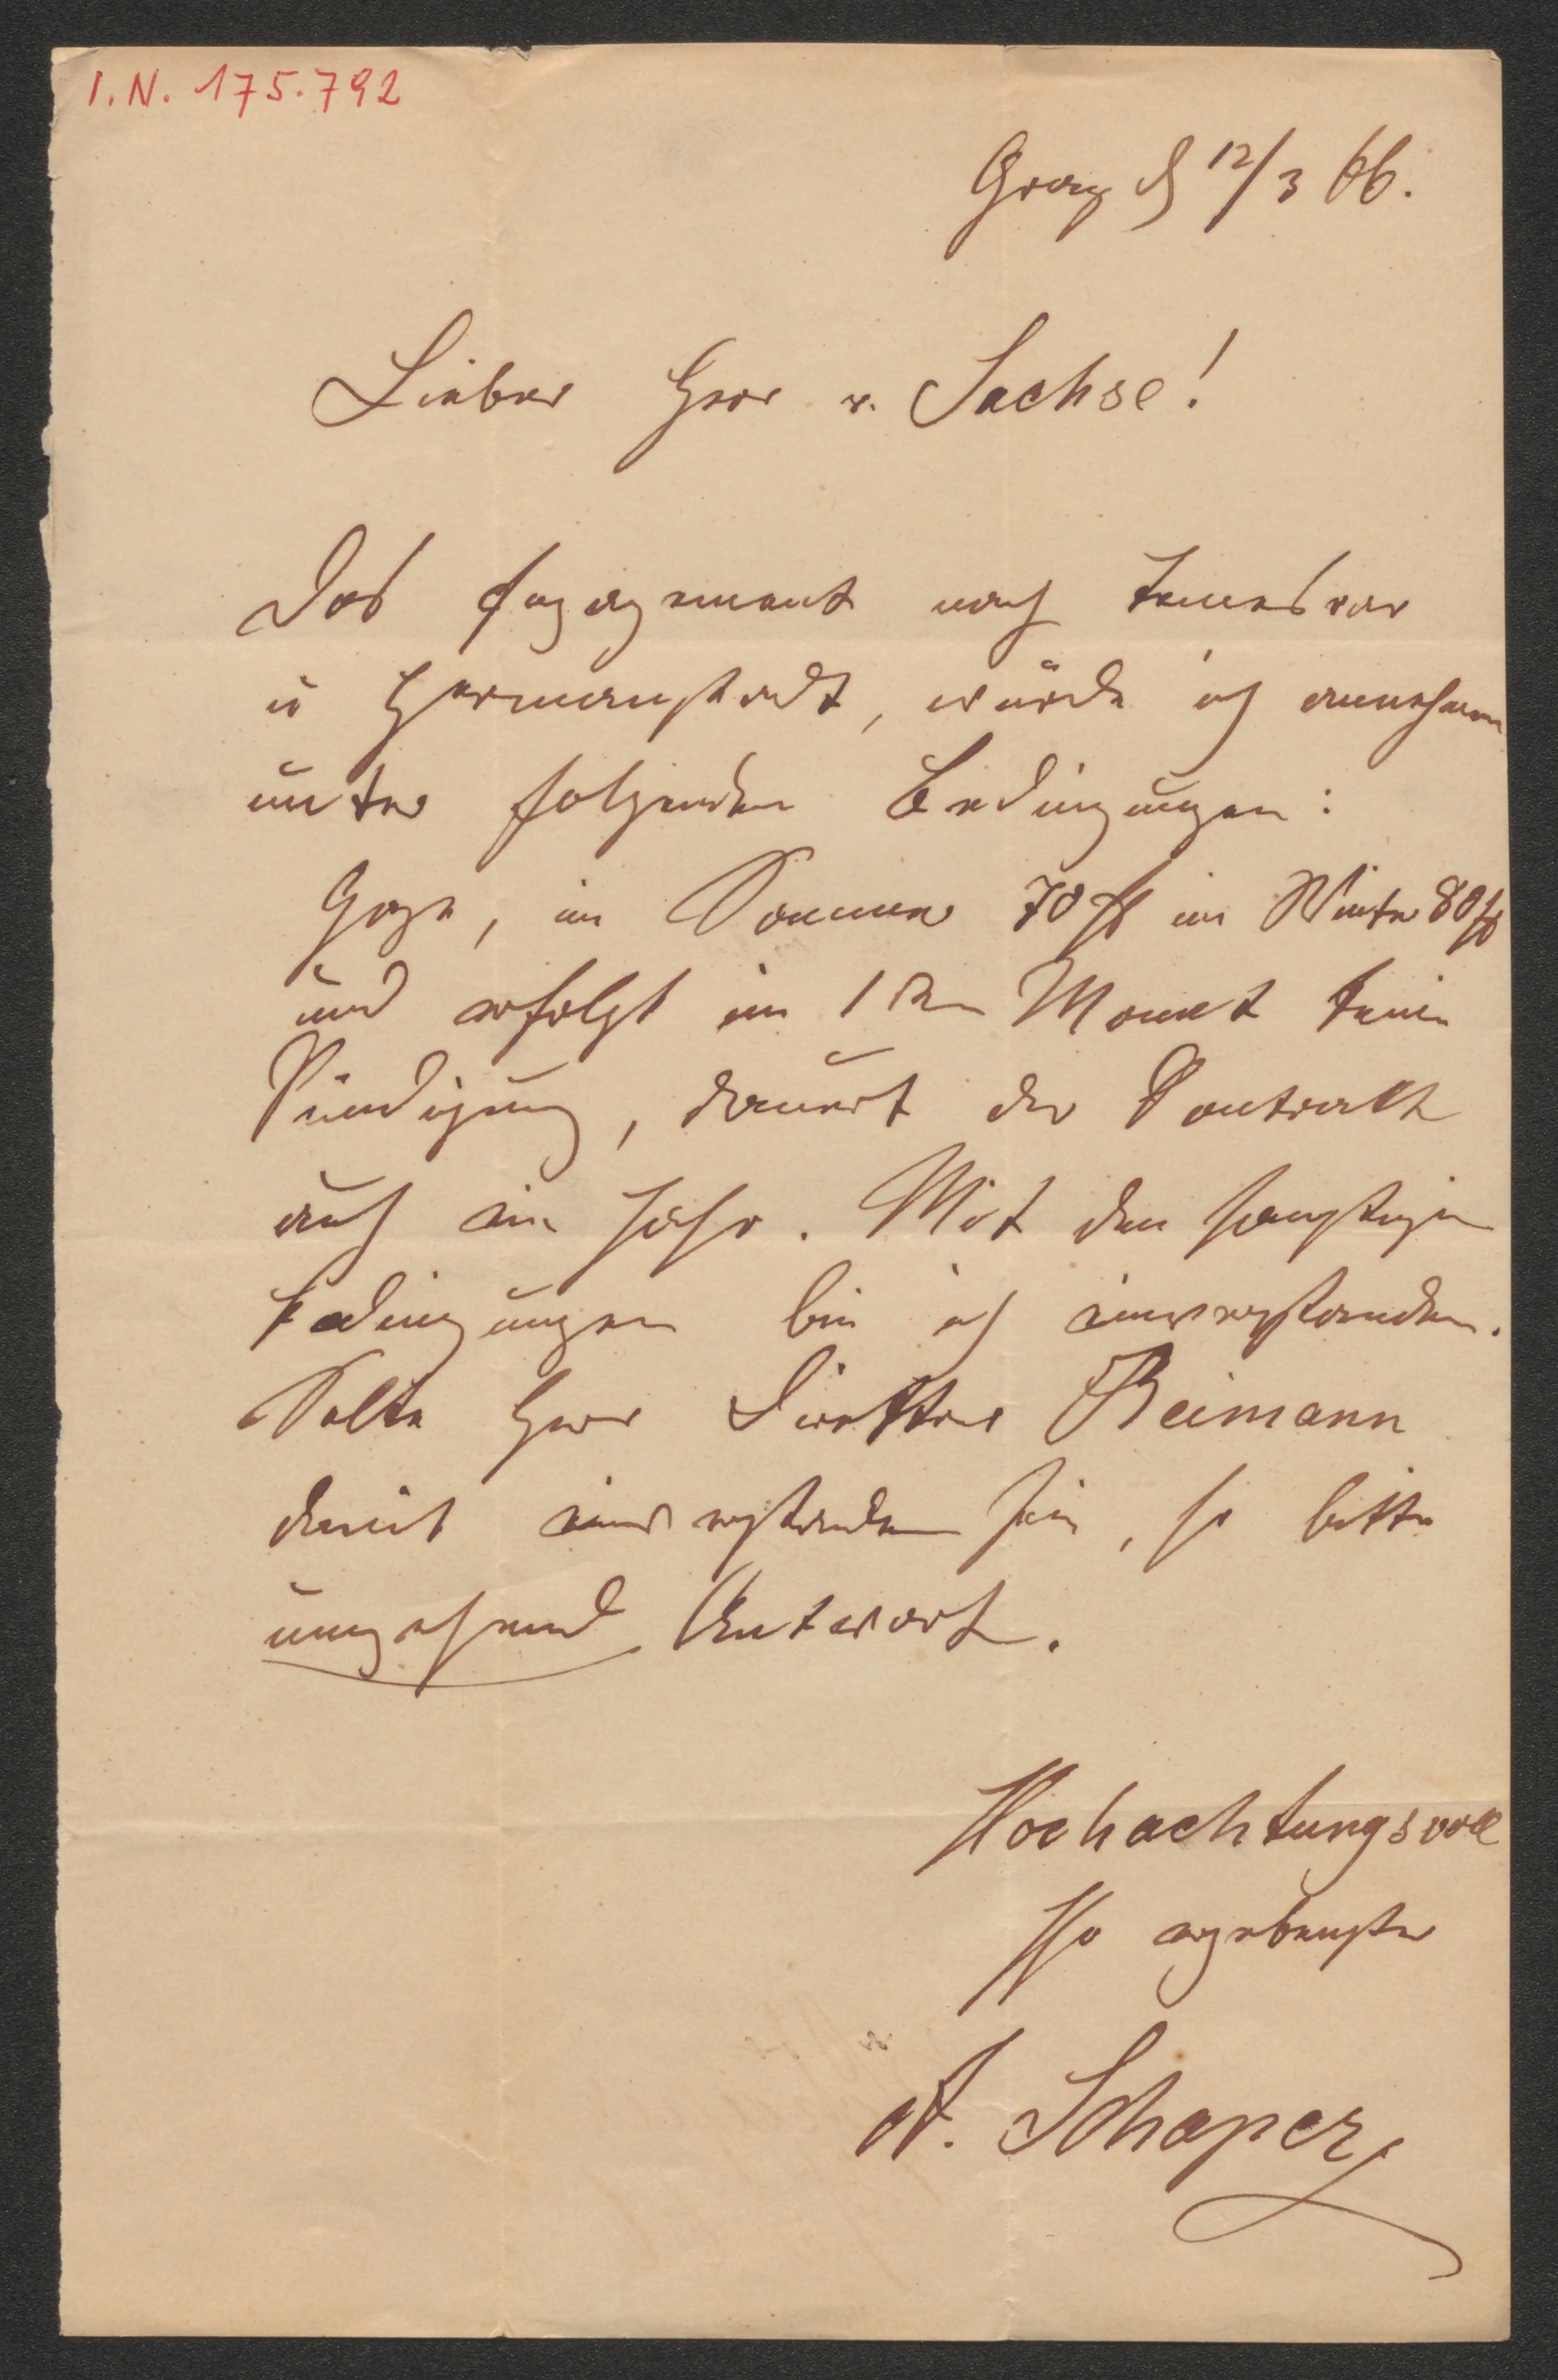 I.N. 175.792
Graz d 12/3 66.
Lieber Herr v. Sachse!
Das Engagement nach Temesvar
u Hermanstadt, würde ich annehmen
unter folgenden Bedingungen:
Gage, im Sommer 70 fl im Winter 80 fl
und erfolgt im 1ten Monat keine
Kündigung, dauert der Kontrakt
auf ein Jahr. Mit den sonstigen
Bedingungen bin ich einverstanden.
Solte Herr Direktor Reimann
damit einverstanden sein, so bitte
umgehend Antwort.
Hochachtungsvoll
Ihr ergebenster
A. Schaper